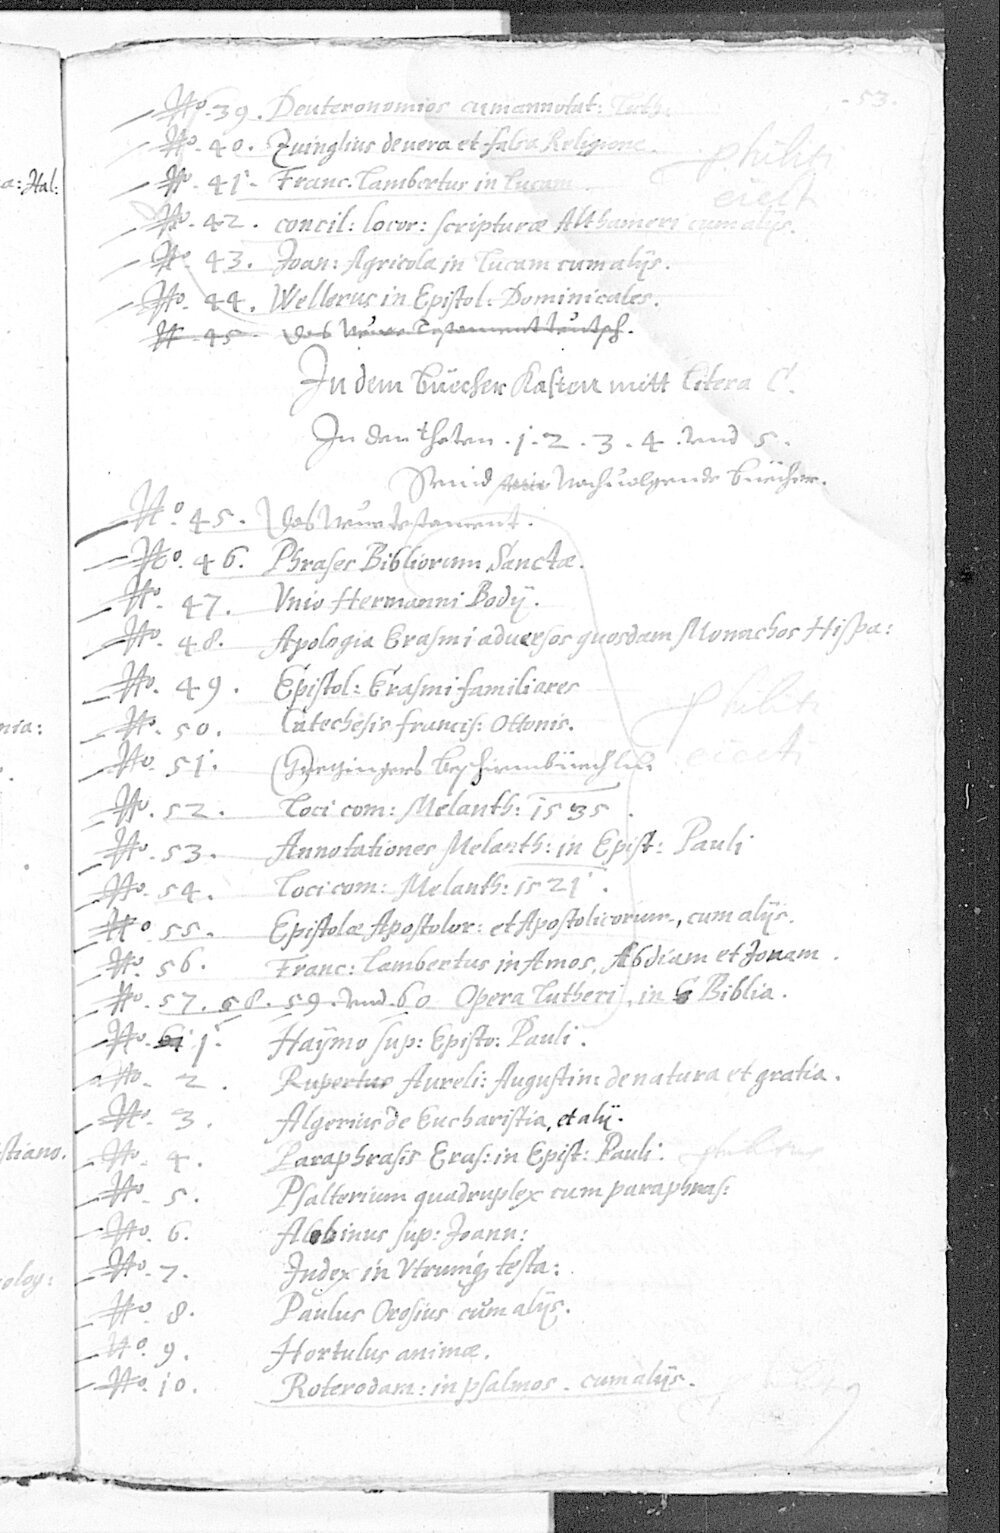 .53.
No. 39. Deuteronomios cum annotat: Luth.
No. 40. Zuinglius de vera et falsa Religione.
No. 41. Franc. Lambertus in Lucam.
No. 42. concil: locor: scripturæ Althameri cum alijs.
No. 43. Joan: Agricola in Lucam cum alijs.
No. 44. Wellerus in Epistol: Dominicales.
No. 45. Das Neuwe Testament teutsch.
In dem büecher Kasten mitt Litera C.
In den theten . 1 . 2 . 3 . 4 . vnd 5 .
Seind Nachuolgende büecher.
No. 45. Das Neuw testament.
No. 46. Phrases Bibliorum Sanctæ.
No. 47. Vnio Hermanni Bodij.
No. 48. Apologia Erasmi aduersos quosdam Monachos Hispa:
No. 49. Epistol: Erasmi familiares
No. 50. Catechesis francis: Ottonis.
No. 51.
No. 52. Loci com: Melanth: 1535.
No. 53. Annotationes Melanth: in Epist: Pauli
No. 54. Loci com: Melanth: 1521.
No. 55. Epistolæ Apostolor: et Apostolicorum, cum alijs.
No. 56. Franc: Lambertus in Amos, Abdiam et Jonam.
No. 57. 58. 59. vnd 60 Opera Lutheri, in 6 Biblia.
No. 1. Haÿmo sup: Episto: Pauli.
No. 2. Rupertus Aureli: Augustin: de natura et gratia.
No. 3. Algerius de Eucharistia, et alij.
No. 4. Paraphrasis Eras: in Epist: Pauli:
No. 5. Psalterium quadruplex cum paraphras:
No. 6. Albinus sup: Joann:
No. 7. Index in Vtrumq; testa:
No. 8. Paulus Orosius cum alijs.
No. 9. Hortulus animæ.
No. 10. Roterodam: in psalmos. cum alijs.